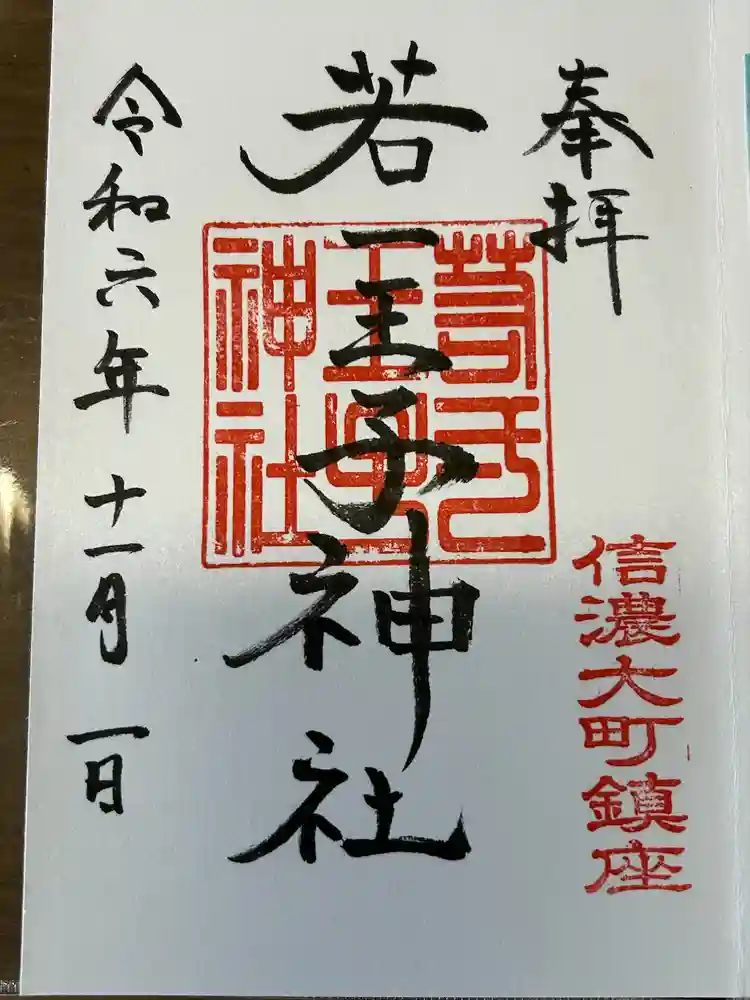 奉拝
信濃大町鎮座
若一王子神社
神社
令和六年十一月一日